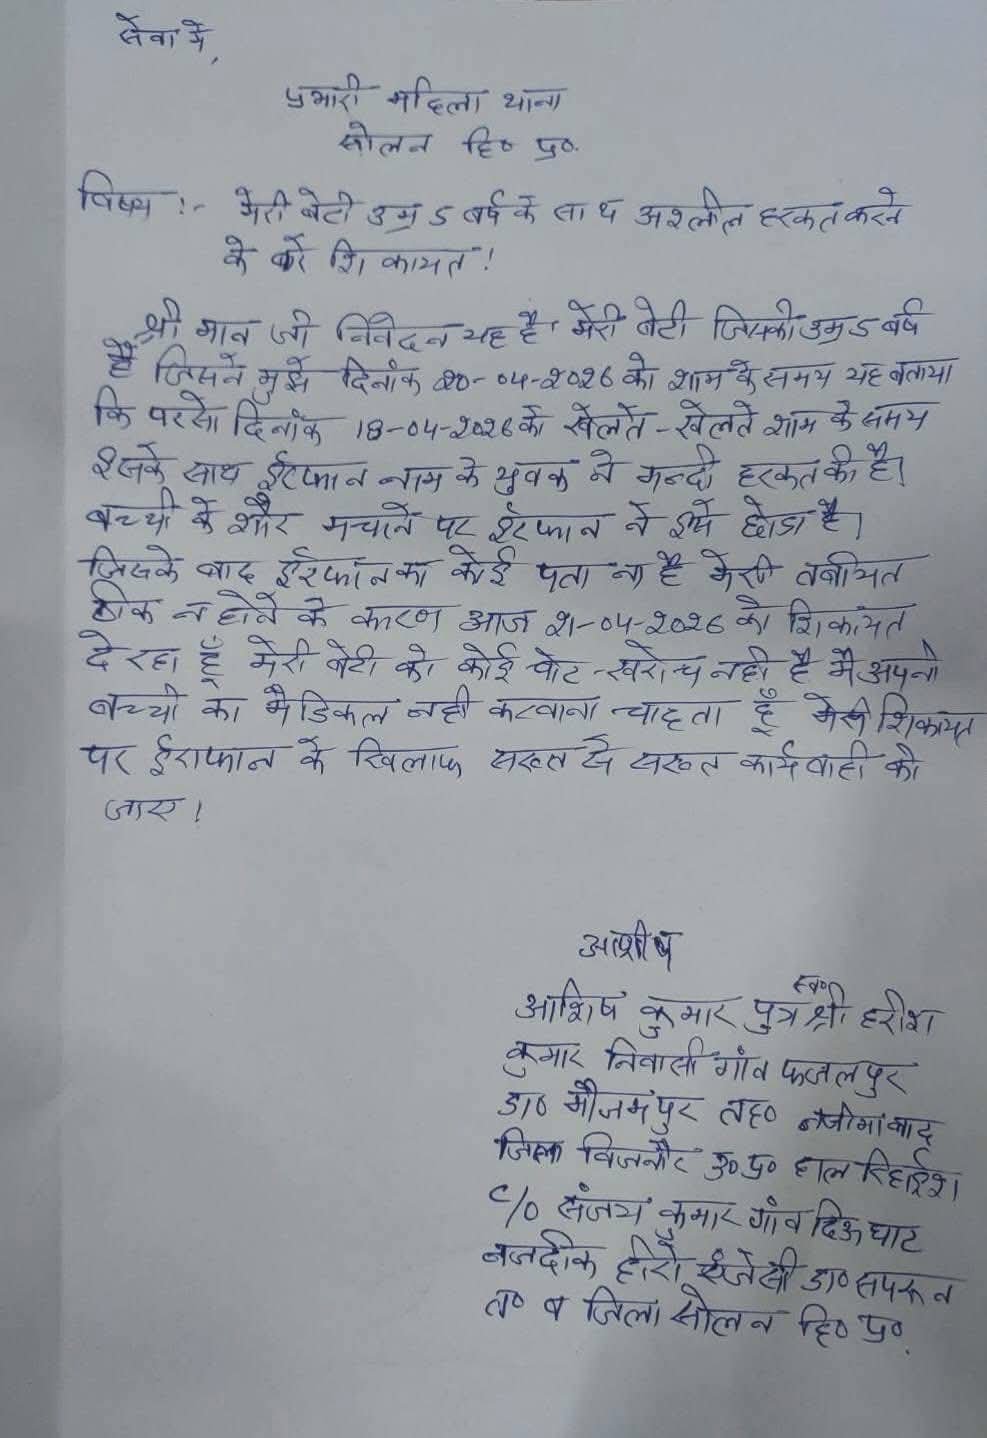 सेवा मे,
प्रभारी महिला थाना
सोलन हि० प्र०.
विषय :- मेरी बेटी उम्र 5 बर्ष के साथ अश्लील हरकत करने
के बारे शिकायत!
श्री मान जी निवेदन यह है मेरी बेटी जिसकी उम्र 5 बर्ष
है जिसने मुझे दिनांक 20-04-2026 को शाम के समय यह बताया
कि परसो दिनांक 18-04-2026 को खेलते-खेलते शाम के समय
इसके साथ ईरफान नाम के युवक ने गन्दी हरकत की है।
बच्ची के शौर मचाने पर ईरफान ने इसे छोडा है।
जिसके बाद ईरफान का कोई पता ना है मेरी तबीयत
ठीक न होने के कारण आज 21-04-2026 को शिकायत
दे रहा हूँ मेरी बेटी को कोई चोट-खरोच नही है मै अपनी
बच्ची का मैडिकल नही करवाना चाहता हूँ मेरी शिकायत
पर ईराफान के खिलाफ सख्त से सख्त कार्यवाही की
जाए।
आशीष
आशिष कुमार पुत्र स्व० श्री हरीश
कुमार निवासी गांव फजलपुर
डा० मौजमपुर तह० नजीमाबाद
जिला विजनौर उ० प्र० हाल रिहाईश
C/O संजय कुमार गांव दिऊघाट
नजदीक हीरो एजेंसी डा० सपरून
त० व जिला सोलन हि० प्र०.